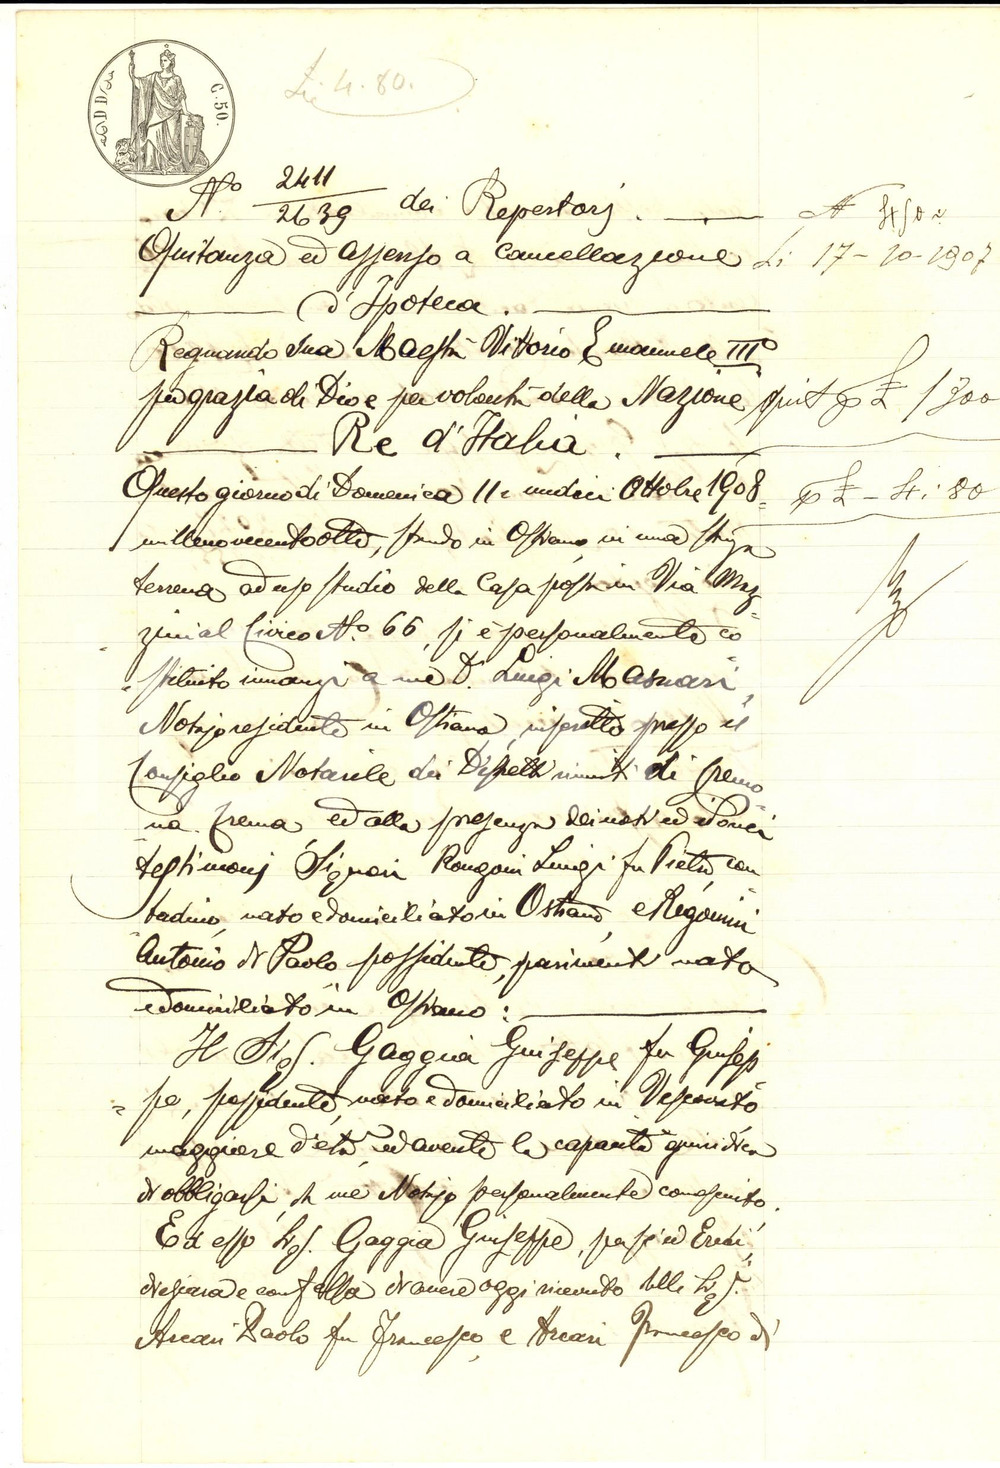 C. 50.
L. 4.80.
N.° 2411/2639 dei Repertorj.
Quitanza ed assenso a cancellazione
d'Ipoteca.
Regnando Sua Maestà Vittorio Emanuele III°
per grazia di Dio e per volontà della Nazione
Re d'Italia.
Questo giorno di Domenica 11 undici Ottobre 1908
millenovecentootto, stando in Ostiano, in una stanza
terrena ad uso studio della Casa posta in Via Maz=
zini al Civico N.° 66, si è personalmente co
=stituito innanzi a me D.r Luigi Masnari,
Notajo residente in Ostiano, inscritto presso il
Consiglio Notarile dei Distretti riuniti di Cremo=
na. Crema, ed alla presenza dei noti ed idonei
testimonj Signori Rongoni Luigi fu Pietro con=
tadino, nato e domiciliato in Ostiano, e Regonini
Antonio di Paolo possidente, parimenti nato
e domiciliato in Ostiano:
Il Sig. Gaggia Giuseppe fu Giusep
=pe, possidente, nato e domiciliato in Vescovato
maggiore d'età, ed avente la capacità giuridica
di obbligarsi, da me Notajo personalmente conosciuto.
Ed esso Sig. Gaggia Giuseppe, per sè ed Eredi,
dichiara e confessa di avere oggi ricevuto dalli Sig.ri
Arcari Paolo fu Francesco, e Arcari Francesco di
N 450
Li 17-10-1907
quit p £ 1300
p £ - 4.80